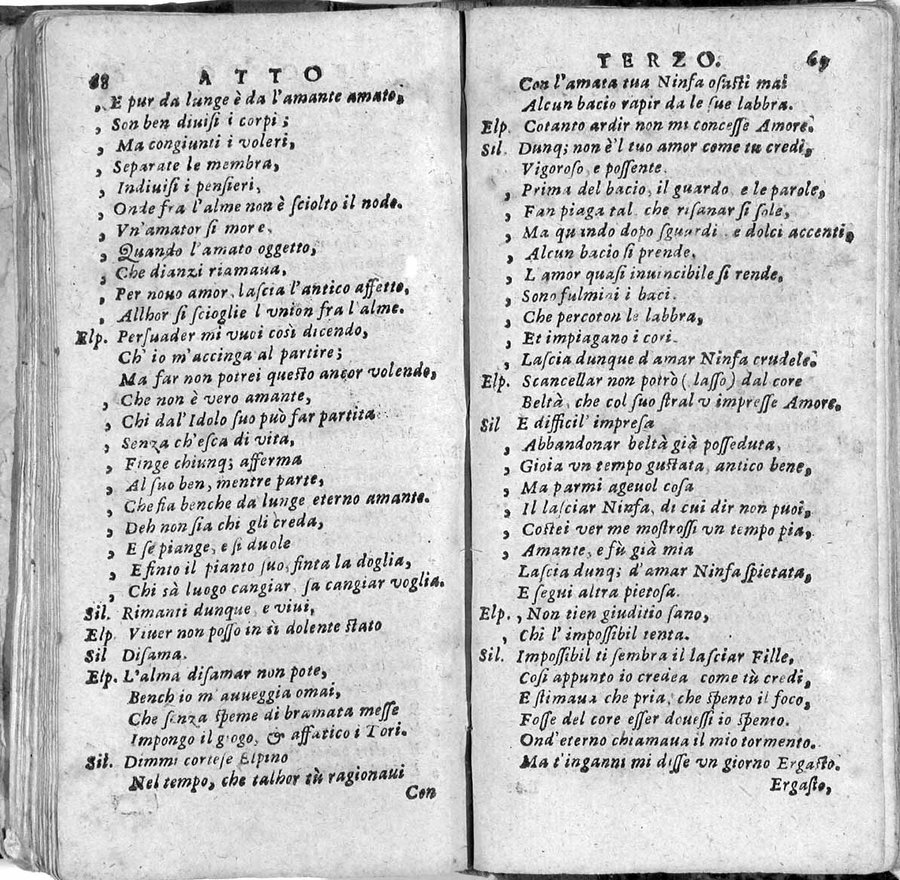 68 ATTO
, E pur da lunge è da l'amante amato,
, Son ben diuiſi i corpi;
, Ma congiunti i voleri,
, Separate le membra,
, Indiuiſi i penſieri,
, Onde fra l'alme non è ſciolto il nodo.
, Vn'amator ſi more,
, Quando l'amato oggetto,
, Che dianzi riamaua,
, Per nouo amor, laſcia l'antico affetto,
, Allhor ſi ſcioglie l'vnion fra l'alme.
Elp. Perſuader mi vuoi così dicendo,
Ch' io m'accinga al partire;
Ma far non potrei queſto ancor volendo,
, Che non è vero amante,
, Chi dal'Idolo ſuo può far partita
, Senza ch'eſca di vita,
, Finge chiunq; afferma
, Al ſuo ben, mentre parte,
, Che ſia benche da lunge eterno amante.
, Deh non ſia chi gli creda,
, E ſe piange, e ſi duole
, E finto il pianto ſuo, finta la doglia,
, Chi sà luogo cangiar, ſa cangiar voglia.
Sil. Rimanti dunque, e viui,
Elp. Viuer non poſſo in sì dolente ſtato
Sil Diſama.
Elp. L'alma diſamar non pote,
Bench io m'auueggia omai,
Che ſenza ſpeme di bramata meſſe
Impongo il giogo, & affatico i Tori.
Sil. Dimmi corteſe Elpino
Nel tempo, che talhor tù ragionaui
Con
TERZO. 69
Con l'amata tua Ninfa oſaſti mai
Alcun bacio rapir da le ſue labbra.
Elp. Cotanto ardir non mi conceſſe Amore.
Sil. Dunq; non è'l tuo amor come tu credi,
Vigoroſo, e poſſente.
, Prima del bacio, il guardo, e le parole,
, Fan piaga tal, che riſanar ſi ſole,
, Ma quando dopo ſguardi, e dolci accenti,
, Alcun bacio ſi prende,
, L'amor quaſi inuincibile ſi rende,
, Sono fulmini i baci.
, Che percoton le labbra,
, Et impiagano i cori.
, Laſcia dunque d'amar Ninfa crudele.
Elp. Scancellar non potrò (laſſo) dal core
Beltà, che col ſuo ſtral v'impreſſe Amore.
Sil E difficil' impreſa
, Abbandonar beltà già poſſeduta,
, Gioia vn tempo guſtata, antico bene,
, Ma parmi ageuol coſa
, Il laſciar Ninfa, di cui dir non puoi,
, Coſtei ver me moſtroſſi vn tempo pia,
, Amante, e fù già mia
Laſcia dunq; d'amar Ninfa ſpietata,
E ſegui altra pietoſa.
Elp. , Non tien giuditio ſano,
, Chi l' impoſſibil tenta.
Sil. Impoſſibil ti ſembra il laſciar Fille,
Coſi appunto io credea come tù credi,
E ſtimaua che pria, che ſpento il foco,
Foſſe del core eſſer doueſſi io ſpento.
Ond'eterno chiamaua il mio tormento.
Ma t'inganni mi diſſe vn giorno Ergaſto.
Ergaſto,